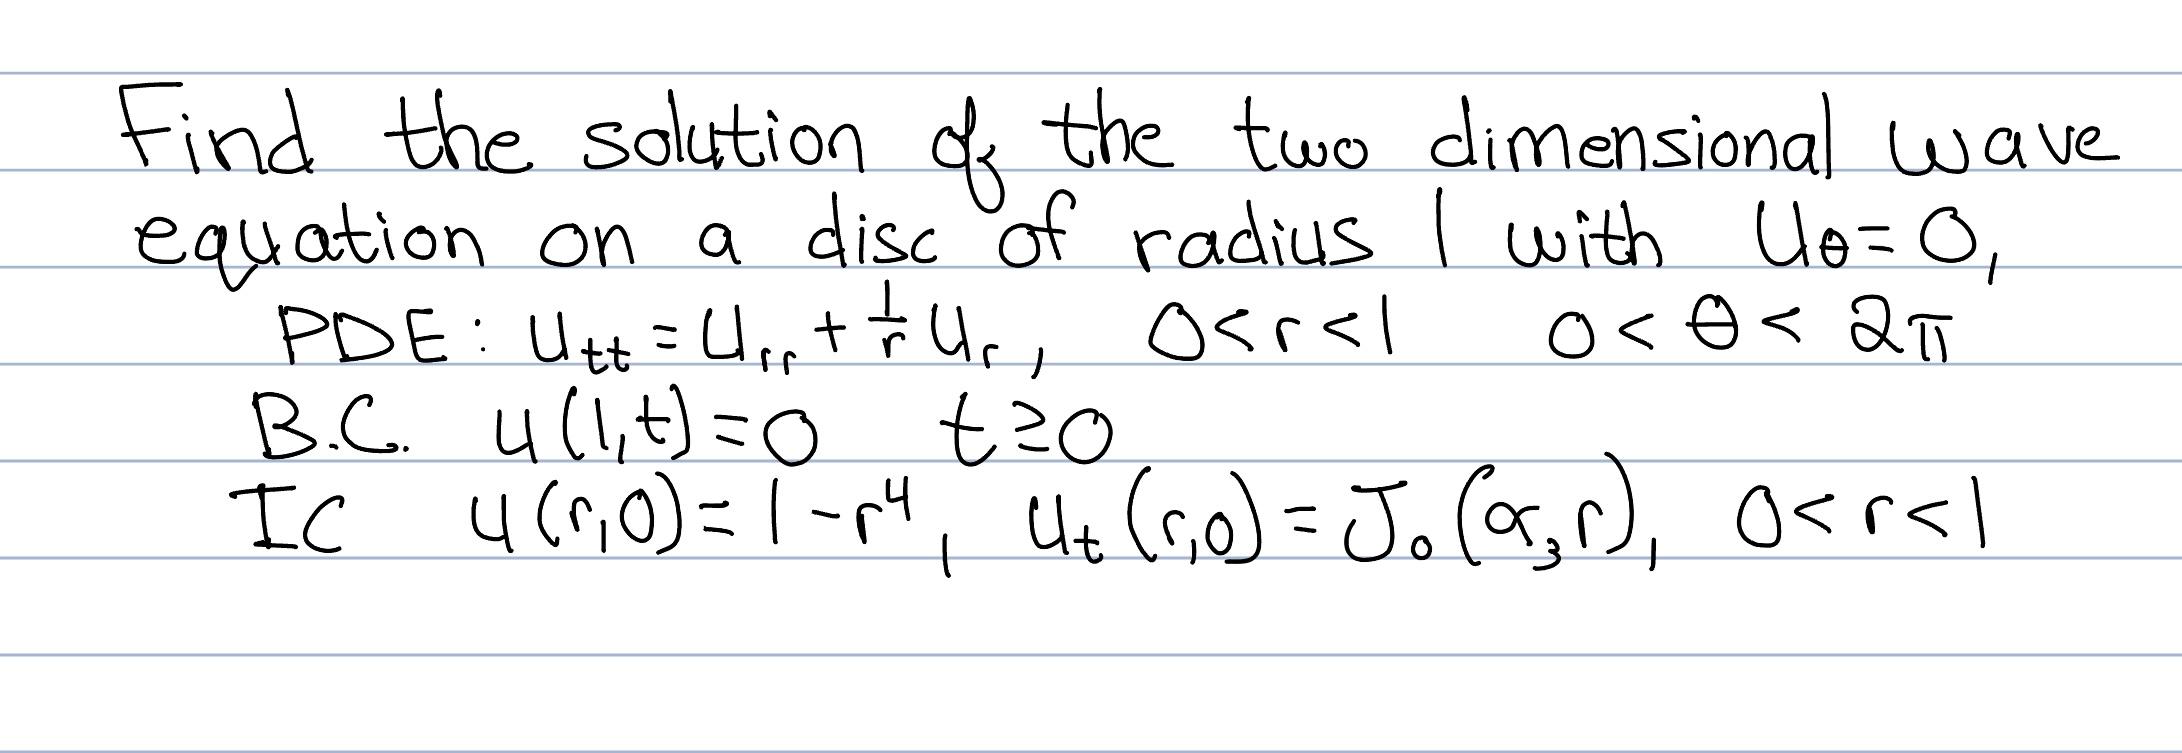 Find the solution of the two dimensional wave
equation on a disc of radius 1 with u_θ=0,
PDE: u_tt = u_rr + 1/r u_r, 0<r<1 0<θ<2π
B.C. u(1,t)=0 t≥0
IC u(r,0)=1-r⁴, u_t(r,0)=J₀(α₃r), 0<r<1